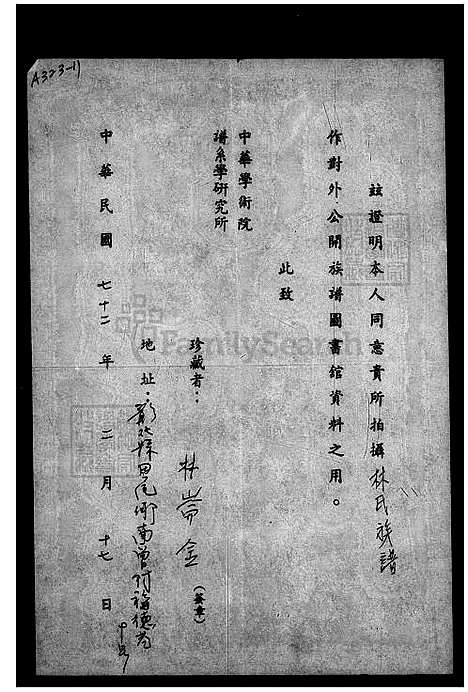 A323-1)
茲證明本人同意貴所拍攝林氏族譜
作對外公開族譜圖書館資料之用。
此致
中華學術院
譜系學研究所
珍藏者：林崇金(簽章)
地址：彰化縣田尾鄉南曾村福德巷
中華民國七十二年二月十七日
FamilySearch